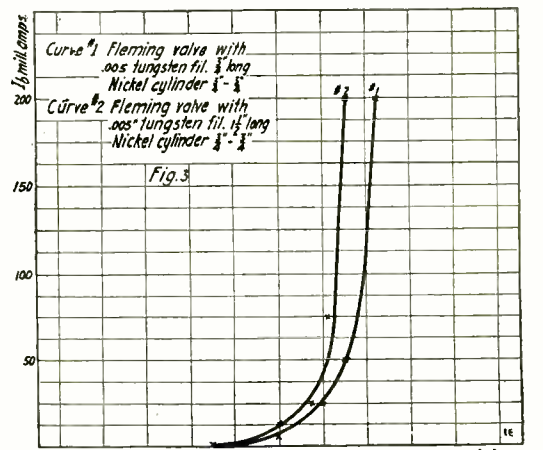 Curve #1 Fleming valve with
.005 tungsten fil. long
Nickel cylinder
Curve #2 Fleming valve with
.005" tungsten fil. 1½" long
Nickel cylinder ¾" - ¾"
Fig. 3
Ib mill.amps.
200
150
100
50
#2 #1
IE